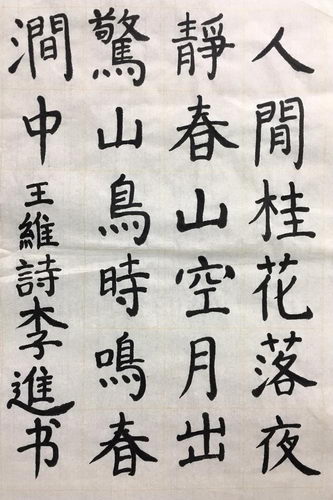 人閒桂花落夜
靜春山空月出
驚山鳥時鳴春
澗中王維詩李進书